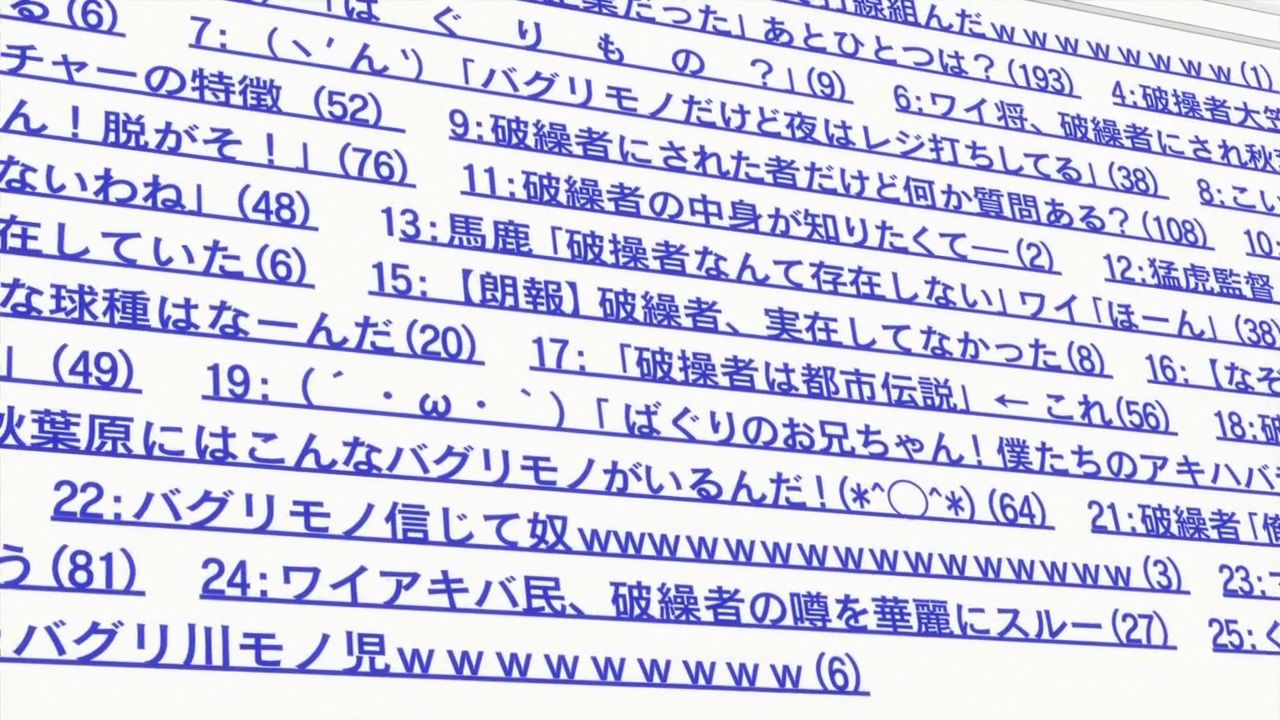 る(6)
7:（ヽ´ん`）「バグリモノだけど夜はレジ打ちしてる」(38)
8:こい
「ば ぐ り も の ？」(9)
6:ワイ将、破繰者にされ秋葉
だった」あとひとつは？(193)
4:破操者大笑
線組んだｗｗｗｗｗｗｗ(1)
チャーの特徴 (52)
9:破繰者にされた者だけど何か質問ある？(108)
10:
ん！脱がそ！」(76)
11:破繰者の中身が知りたくて―(2)
12:猛虎監督
ないわね」(48)
13:馬鹿「破操者なんて存在しない」ワイ「ほーん」(38)
在していた(6)
15:【朗報】破繰者、実在してなかった(8)
16:【なぞ
な球種はなーんだ(20)
17:「破操者は都市伝説」←これ(56)
18:破
」(49)
19:（´・ω・｀）「ばぐりのお兄ちゃん！僕たちのアキハバ
秋葉原にはこんなバグリモノがいるんだ！(*^◯^*) (64)
21:破繰者「俺
22:バグリモノ信じて奴wwwｗｗｗｗｗｗｗｗｗｗｗｗ(3)
23:
う(81)
24:ワイアキバ民、破繰者の噂を華麗にスルー(27)
25:く
:バグリ川モノ児ｗｗｗｗｗｗｗｗｗ(6)